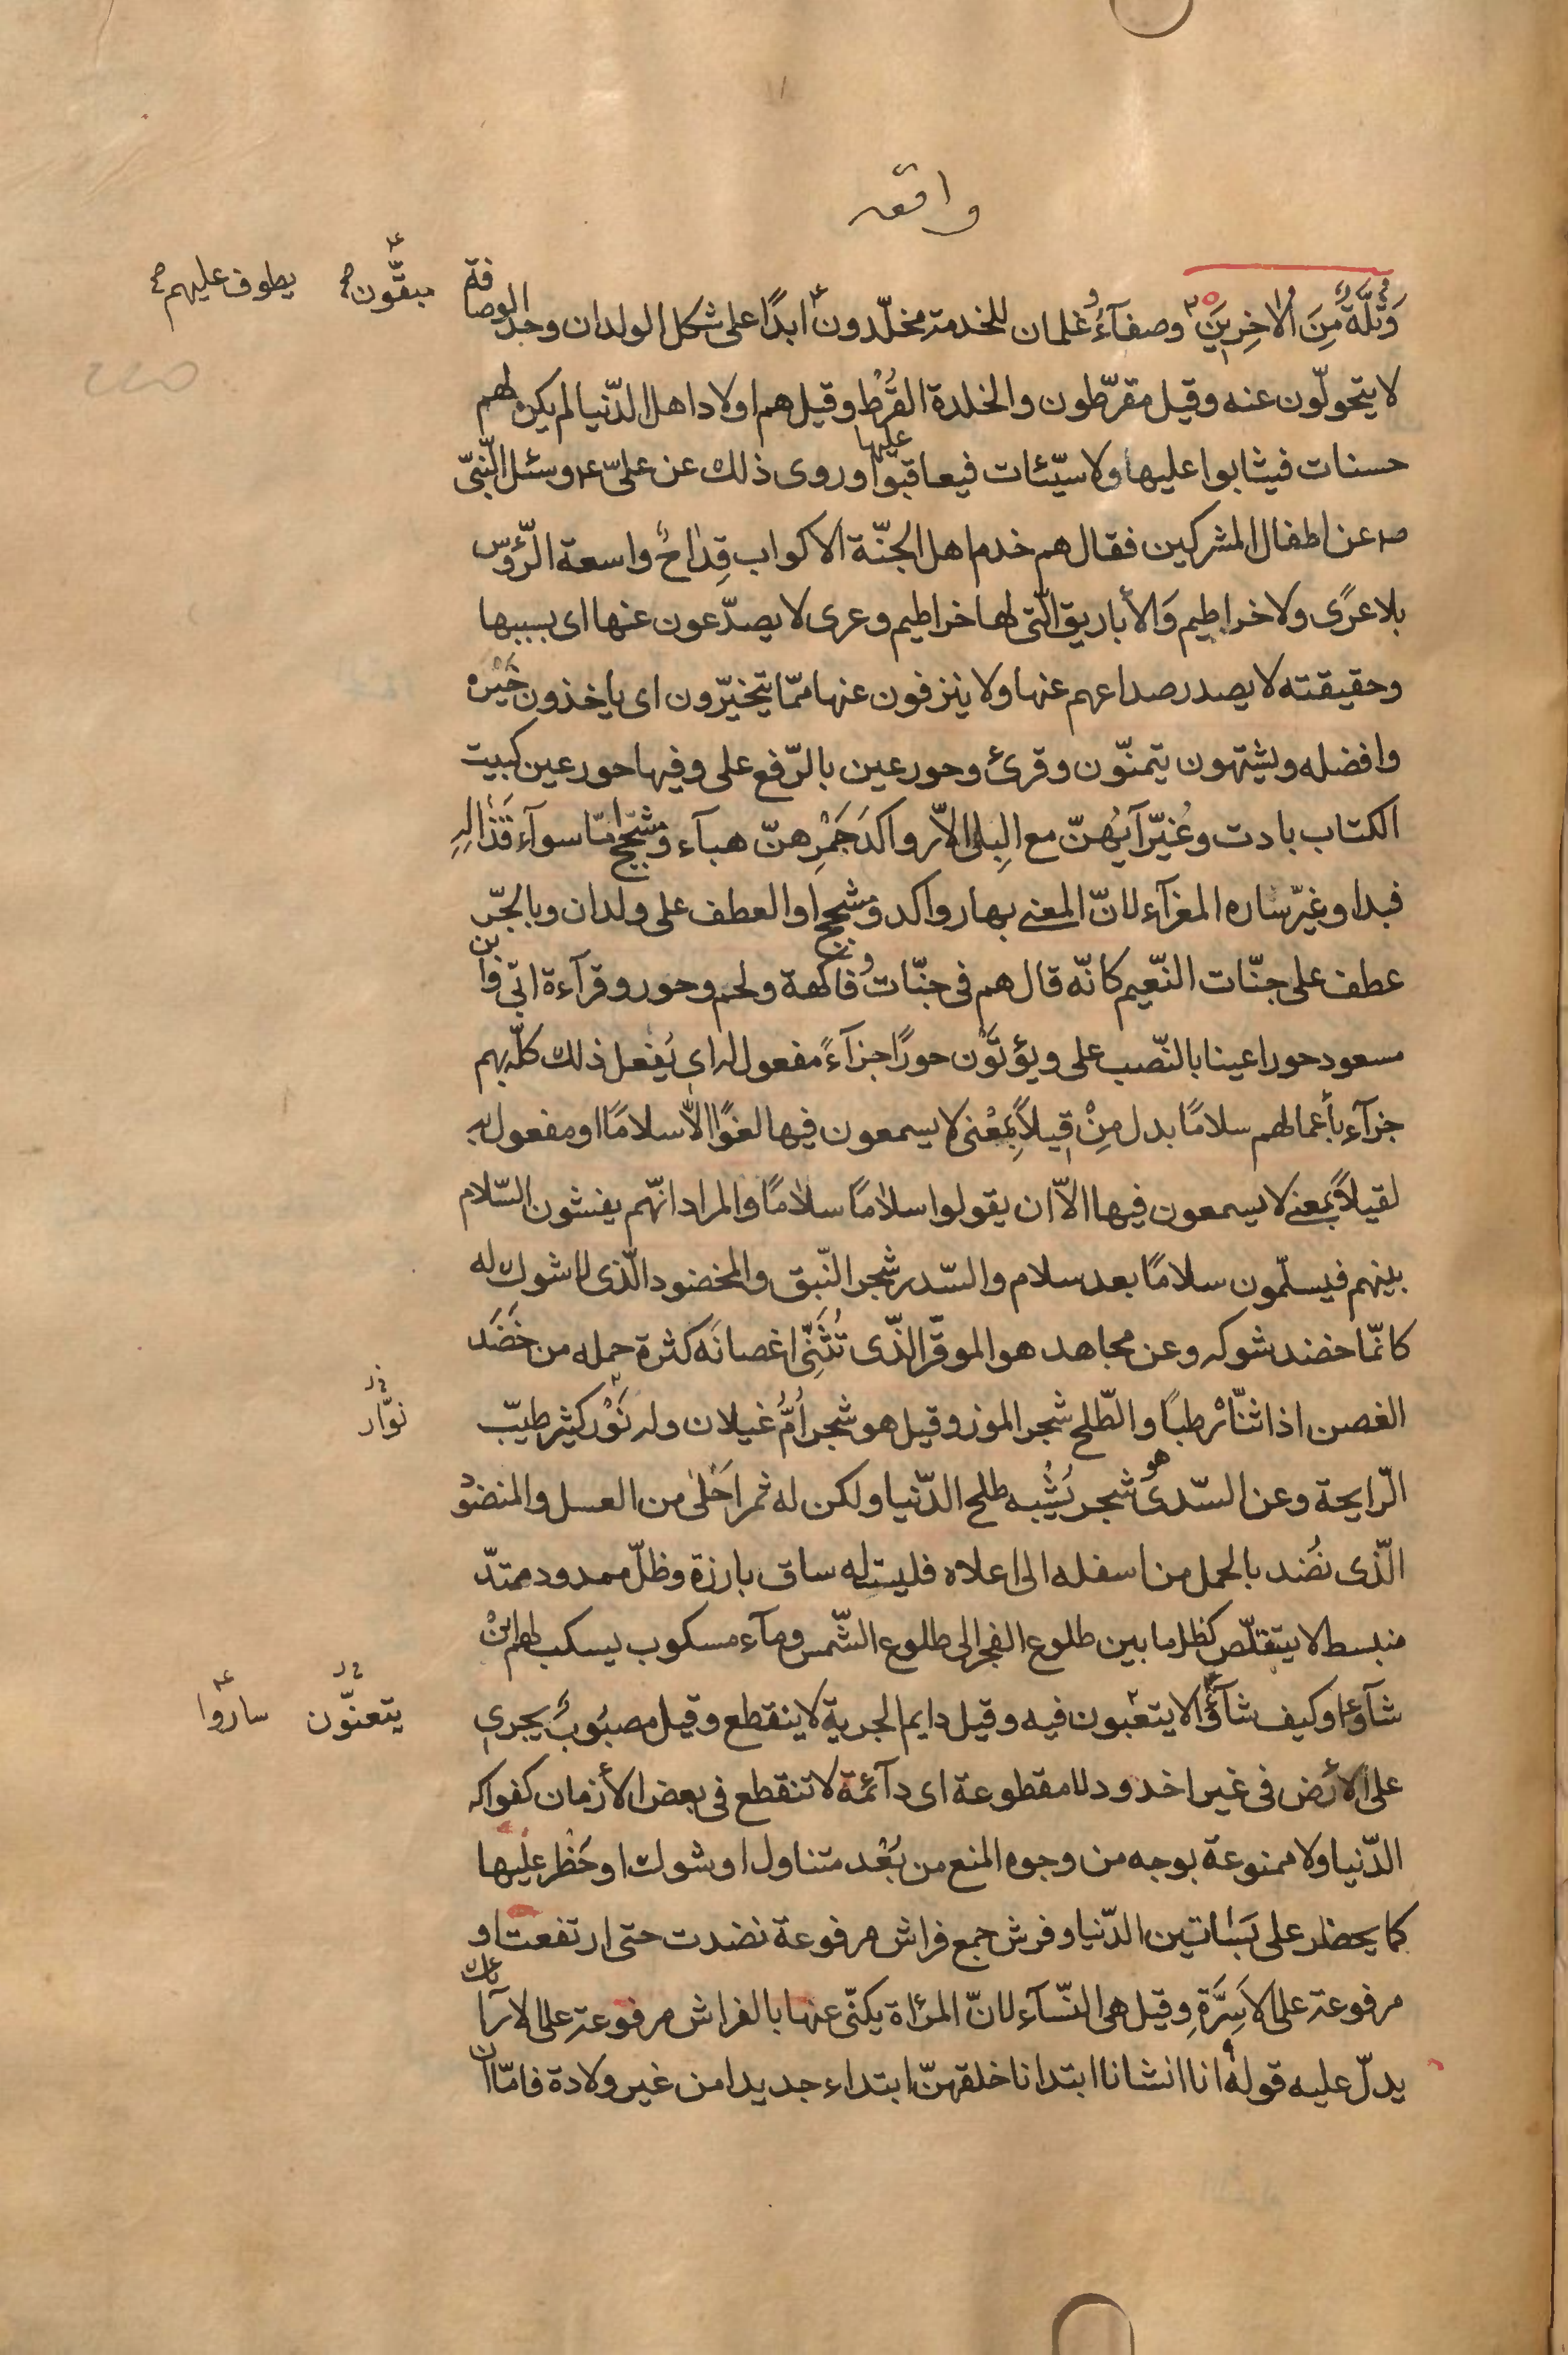 واقعه
وَثُلَّةٌ مِنَ الآخِرِينَ وصفآءُ وغلمان للخدمة مخلّدون ابدًا على شكل الولدان وحدّ الوصافة
يطوف عليهم مبقّون
لا يتحولّون عنه وقيل مقرّطون والخلدة القُرْط وقيل هم اولاد اهل الدّنيا لم يكن لهم
حسنات فيثابوا عليها ولا سيّئات فيعاقبوا عليها وروى ذلك عن علىّ ع وسئل النّبىّ
ص عن اطفال المشركين فقال هم خدم اهل الجنّة الاكواب قِداحٌ واسعة الرّؤس
بلا عرًى ولا خراطيم وَالأباريق الّتى لها خراطيم وعرى لا يصدّعون عنها اى بسببها
وحقيقته لا يصدر صداعهم عنها ولا ينزفون عنها ممّا يتخيّرون اى ياخذون خَيْره
وافضله ويشتهون يتمنّون وقرئ وحور عين بالرّفع على وفيها حور عين كبيت
الكتاب بادت وغُيّر آيَهُنّ مع البِلى الاّ رواكدَ جَمْرِهنّ هبآء ومشجّج امّا سوآء قَذَاله
فبدا وغيّر ساره المعزآء لانّ المعنى بها رواكد ومشجج او العطف على ولدان وبالجّر
عطف على جنّات النّعيم كانّه قال هم فى جنّات وفاكهة ولحم وحور وقرآءة ابّى وابن
مسعود حورا عينا بالنّصب على ويؤتَوْن حورًا جزآءً مفعول له اى يُفعل ذلك كلّه بهم
جزآء بأعمالهم سلامًا بدل مِنْ قيلاً بِمَعْنى لا يسمعون فيها لغوًا الاّ سلامًا او مفعول به
لقيلاً بمعنى لا يسمعون فيها الاّ ان يقولوا سلامًا سلامًا والمراد انّهم يفشون السّلام
بينهم فيسلّمون سلامًا بعد سلام والسّدر شجر النّبق والمخضود الّذى لا شوك له
كانّما خضد شوكه وعن مجاهد هو الموقّر الّذى تُثَنّى اغصانَه كثرة حمله من خَضَد
الغصن اذا ثنّاه رطبًا والطّلح شجر الموز وقيل هو شجر اُمُّ غيلان وله نَوْر كثير طيّب
نوّار
الرّايحة وعن السّدى هو شجر يُشْبه طلح الدّنيا ولكن له ثمر اَحْلىٰ من العسل والمنضود
الّذى نُضد بالحمل من اسفله الى اعلاه فليست له ساق بارزة وظلّ ممدود ممتدّ
منبسط لا يتقلّص كظل ما بين طلوع الفجر الى طلوع الشّمس ومآء مسكوب يسكب لهم ايْن
شآؤا وكيف شآؤا لا يتعبون فيه وقيل دايم الجرية لا ينقطع وقيل مصبُوبٌ يجرى
يتعنّون ساروا
على الأرض فى غير اخدود لا مقطوعة اى دآئمة لا تنقطع فى بعض الأزمان كفواكه
الدّنيا ولا ممنوعة بوجه من وجوه المنع من بُعْد متناول او شوك او حَظْر عليها
كما يحظر على بَساتين الدّنيا وفرش جمع فراش مرفوعة نضدت حتى ارتفعت او
مرفوعة على الاَسِرَّةِ وقيل هى النّسآء لانّ المرأة يكنّى عنها بالفراش مرفوعة على الارآئك
يدلّ عليه قوله انا انشانا ابتدانا خلقهنّ ابتداء جديدا من غير ولادة فامّا ان